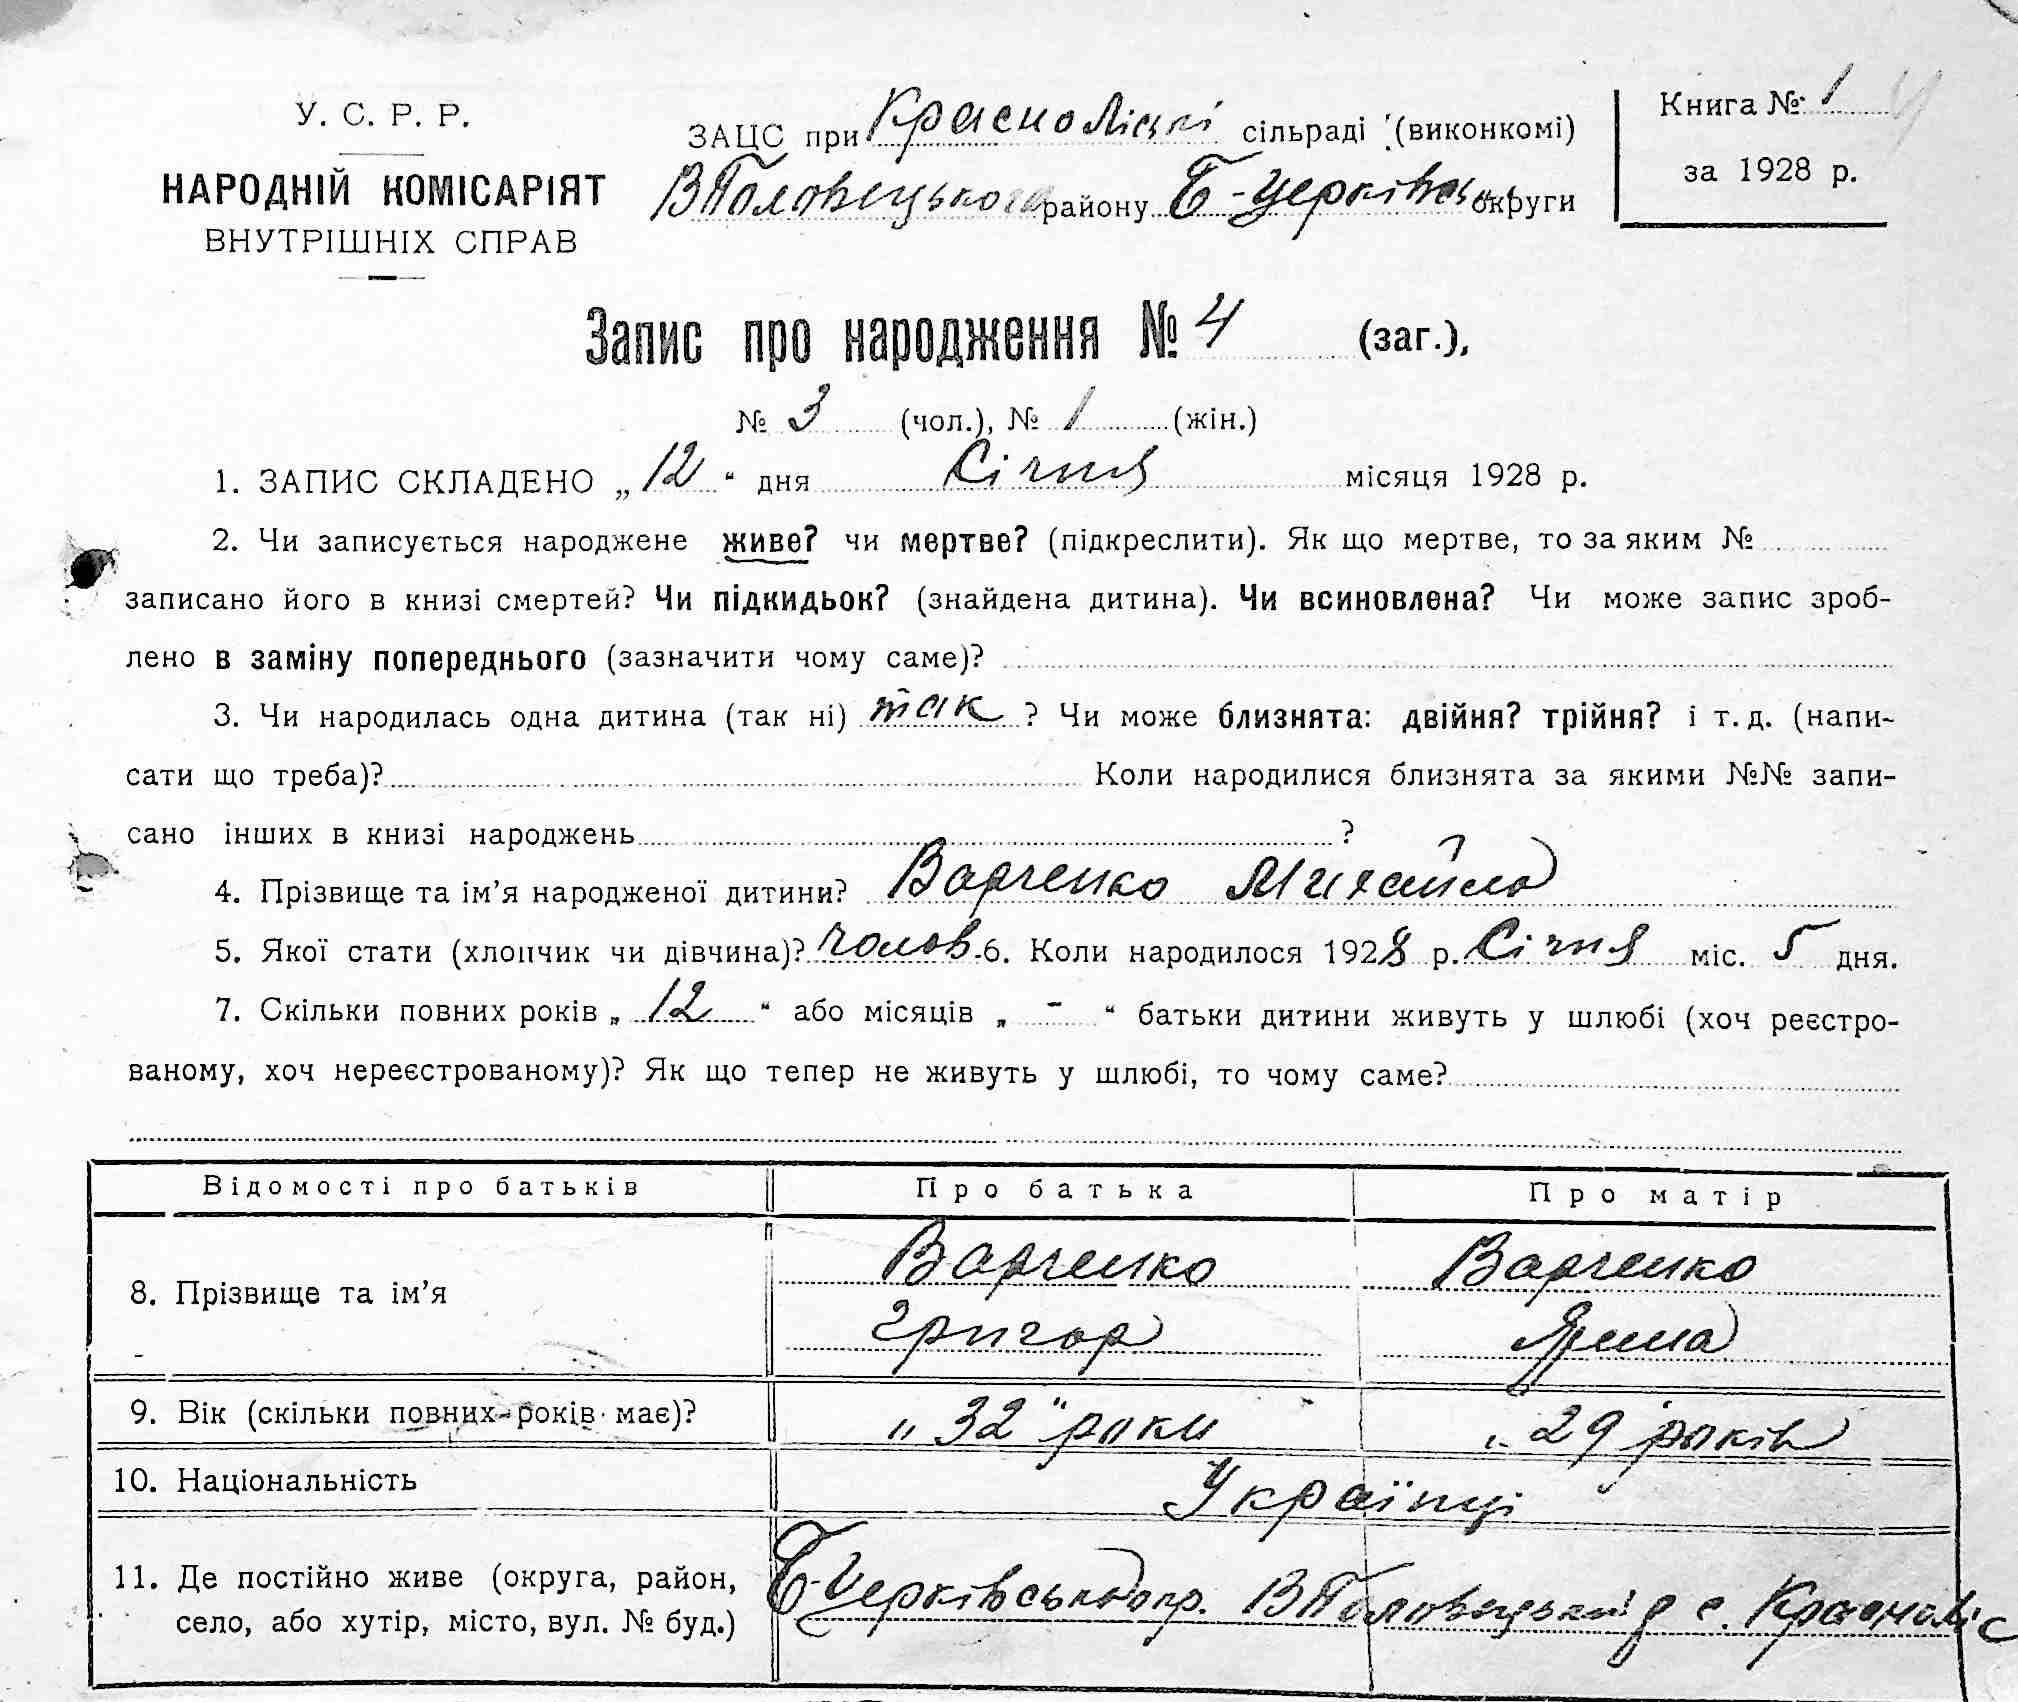 У. С. Р. Р.
НАРОДНІЙ КОМІСАРІЯТ
ВНУТРІШНІХ СПРАВ
ЗАЦС при Краснолісці сільраді (виконкомі)
ВПоловецького району Б-Церківсь округи
Книга № 1
за 1928 р.
Запис про народження № 4 (заг.),
№ 3 (чол.), № 1 (жін.)
1. ЗАПИС СКЛАДЕНО „12“ дня Січня місяця 1928 р.
2. Чи записується народжене живе? чи мертве? (підкреслити). Як що мертве, то за яким №
записано його в книзі смертей? Чи підкидьок? (знайдена дитина). Чи всиновлена? Чи може запис зроб-
лено в заміну попереднього (зазначити чому саме)?
3. Чи народилась одна дитина (так ні) так ? Чи може близнята: двійня? трійня? і т. д. (напи-
сати що треба)? Коли народилися близнята за якими №№ запи-
сано інших в книзі народжень ?
4. Прізвище та ім’я народженої дитини? Варченко Михайло
5. Якої стати (хлопчик чи дівчина)? чолов. 6. Коли народилося 1928 р. Січня міс. 5 дня.
7. Скільки повних років „12“ або місяців „-“ батьки дитини живуть у шлюбі (хоч реєстро-
ваному, хоч нереєстрованому)? Як що тепер не живуть у шлюбі, то чому саме?
Відомості про батьків Про батька Про матір
8. Прізвище та ім’я Варченко Варченко
Григор Ярина
9. Вік (скільки повних років має)? „32" роки „29 років
10. Національність Українці
11. Де постійно живе (округа, район,
село, або хутір, місто, вул. № буд.)
Б-Церківська окр. ВПоловецький р с. Красноліс